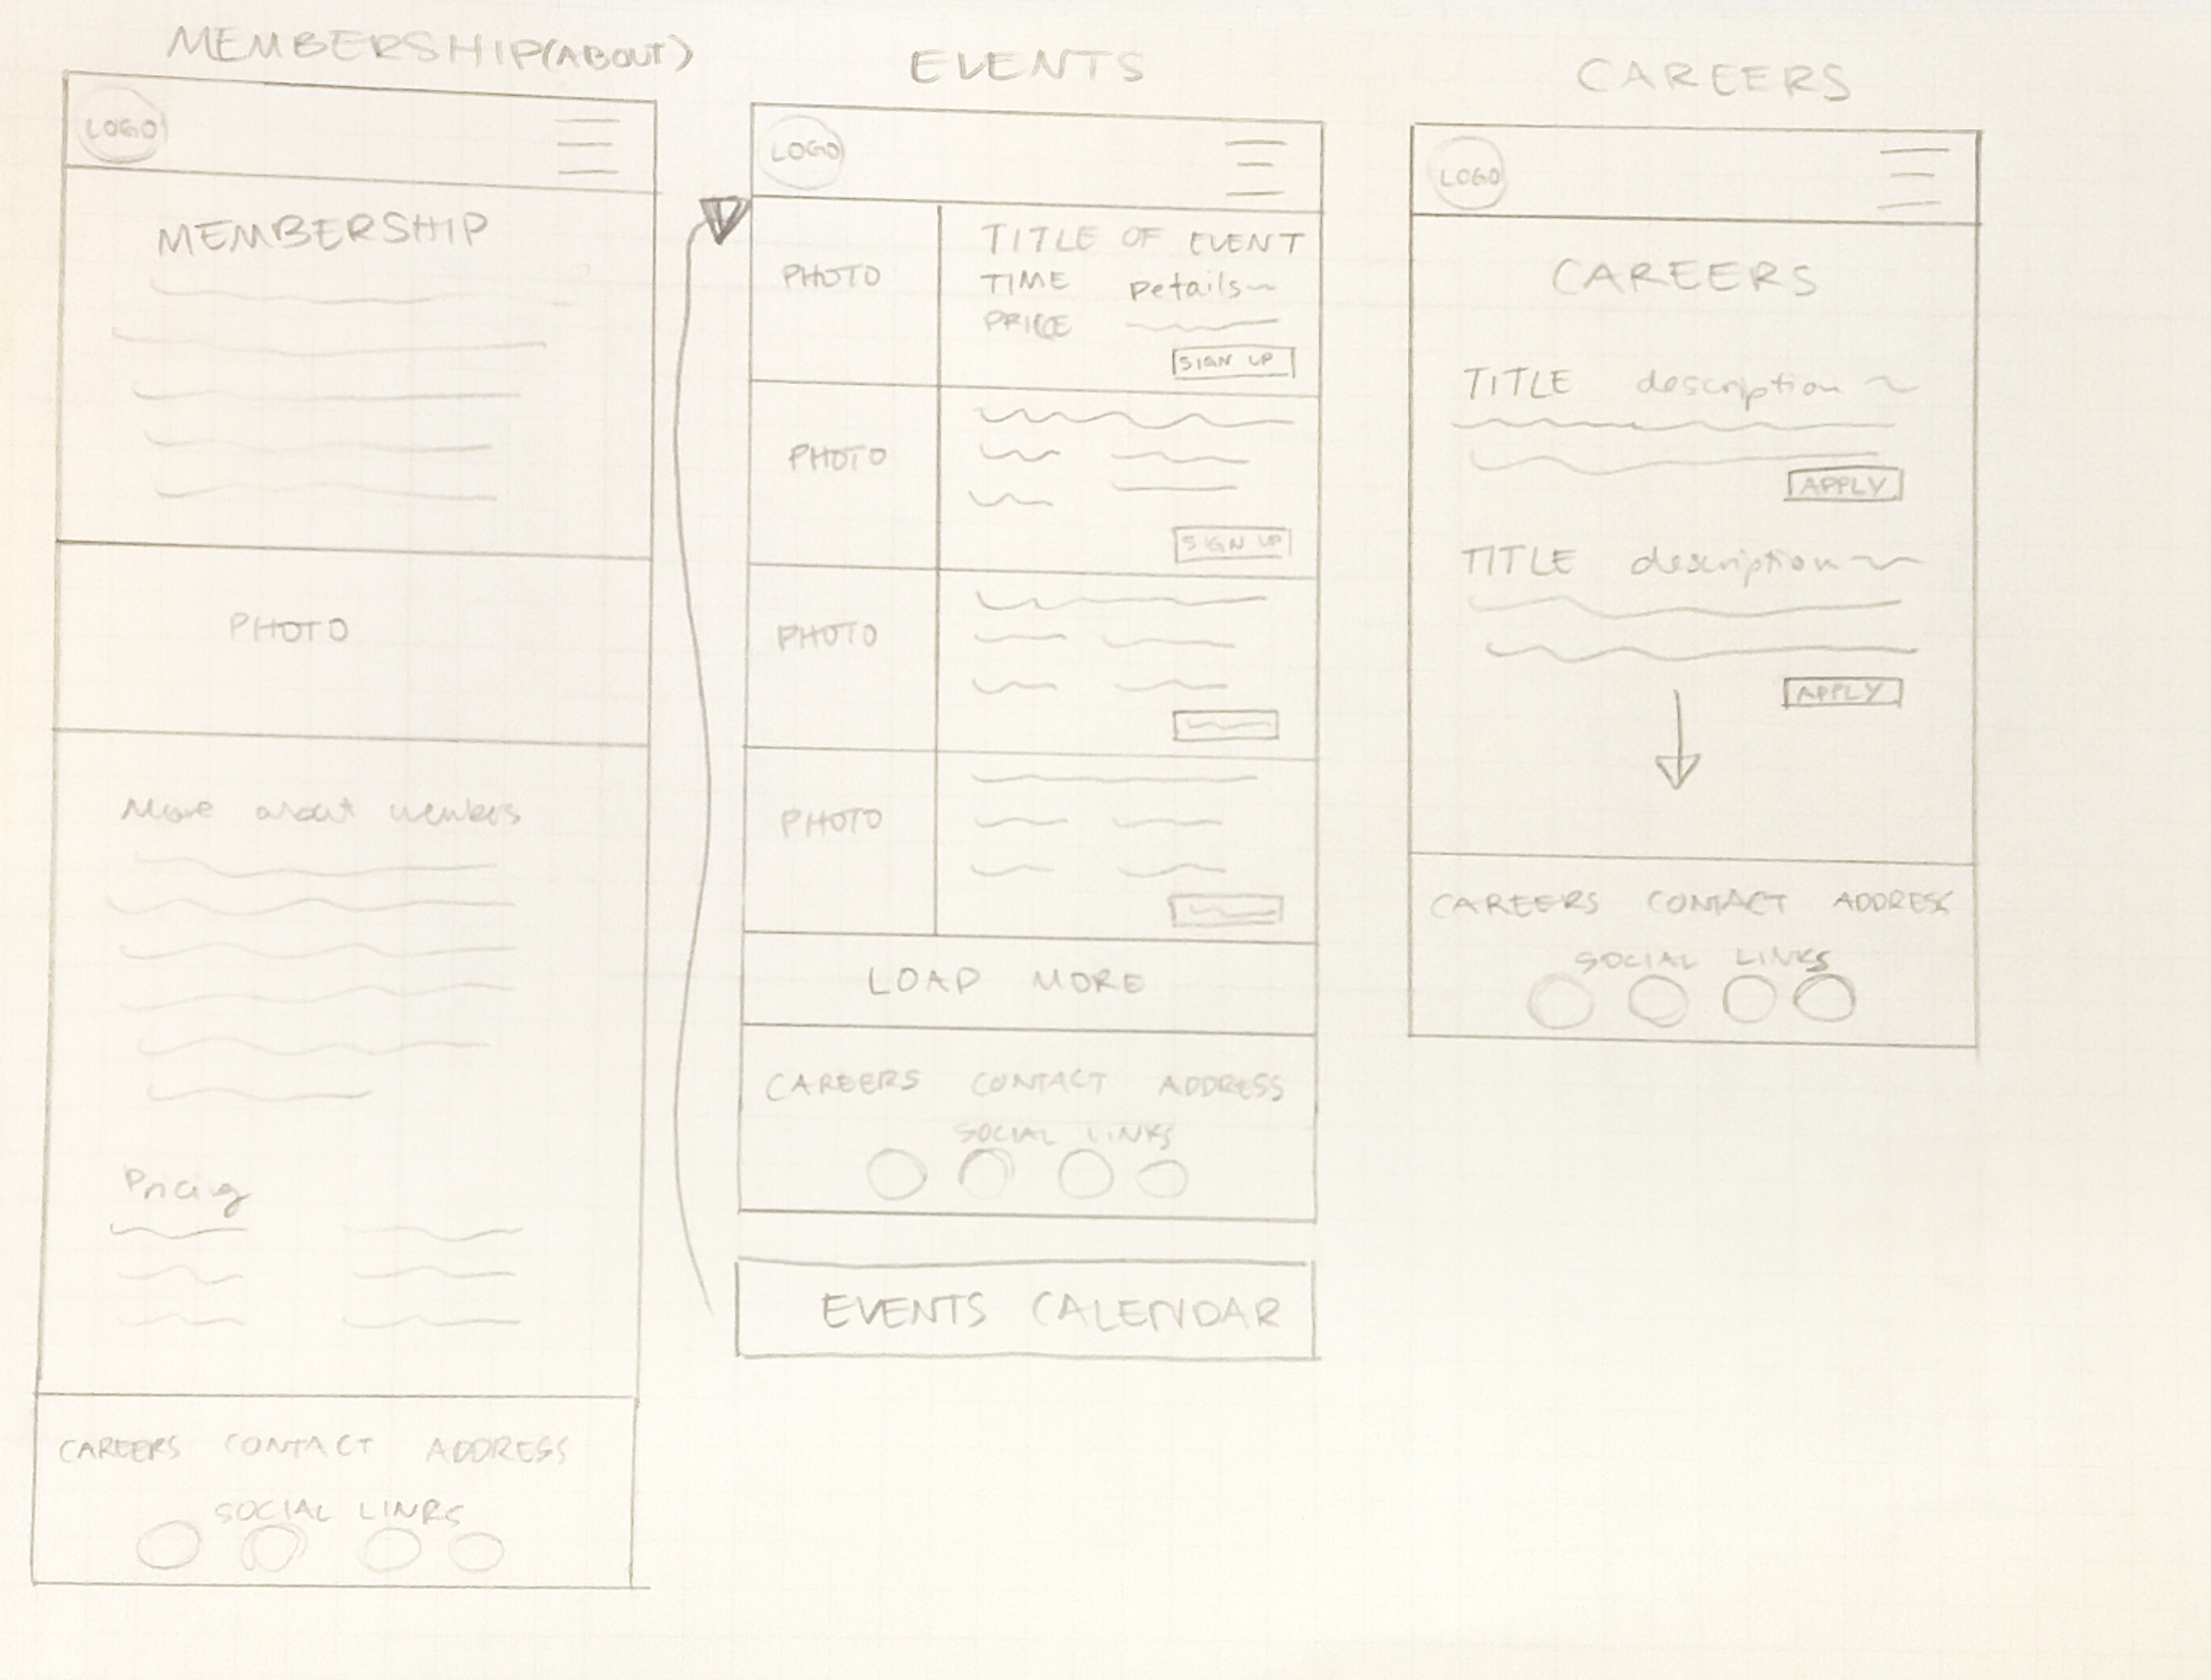 MEMBERSHIP(ABOUT)
LOGO
MEMBERSHIP
PHOTO
More about members
Pricing
CAREERS CONTACT ADDRESS
SOCIAL LINKS
EVENTS
LOGO
PHOTO
TITLE OF EVENT
TIME Details
PRICE
SIGN UP
PHOTO
SIGN UP
PHOTO
PHOTO
LOAD MORE
CAREERS CONTACT ADDRESS
SOCIAL LINKS
EVENTS CALENDAR
CAREERS
LOGO
CAREERS
TITLE description
APPLY
TITLE description
APPLY
CAREERS CONTACT ADDRESS
SOCIAL LINKS